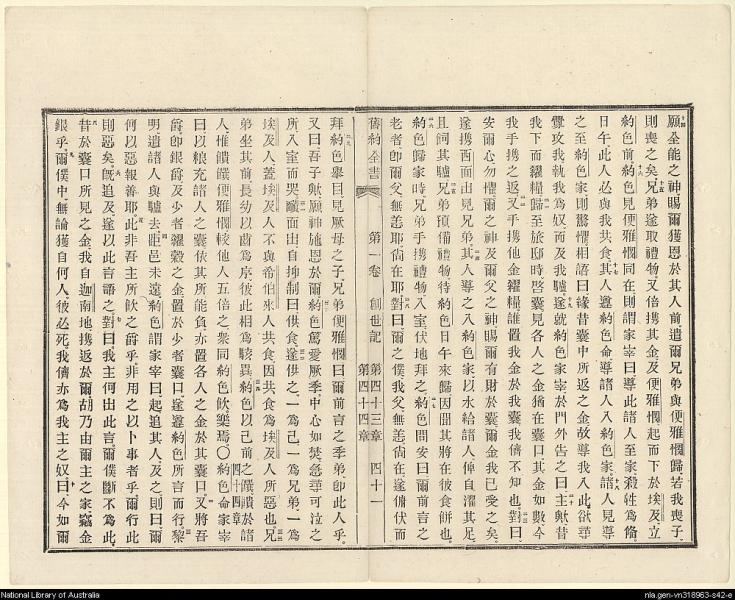 願全能之神賜爾獲恩於其人前遣爾兄弟與便雅憫歸若我喪子
則喪之矣兄弟遂取禮物又倍攜其金及便雅憫起而下於埃及立
約色前約色見便雅憫同在則謂家宰曰導此諸人至家殺牲爲備
日午此人必與我共食其人遵約色命導諸人入約色家諸人見導
之至約色家則驚懼相語曰緣昔囊中所返之金故導我入此欲尋
釁攻我執我爲奴而及我驢遂就約色家宰於門外告之曰主歟昔
我下而糴糧歸至旅邸時啓囊見各人之金猶在囊口其金如數今
我手攜之返又手攜他金糴糧誰置我金於我囊我儕不知也對曰
安爾心勿懼爾之神及爾父之神賜爾有財於爾囊爾金我已受之矣
遂攜西面出見兄弟其人導之入約色家以水給諸人俾自濯其足
且飼其驢兄弟預備禮物待約色日午來歸因聞其將在彼食餅也
約色歸家時兄弟手攜禮物入室伏地拜之約色問安曰爾前言之
老者卽爾父無恙耶尙在耶對曰爾之僕我父無恙尙在遂俯伏而
舊約全書 第一卷 創世記 第四十三章 第四十四章 四十一
拜約色舉目見厥母之子兄弟便雅憫曰爾前言之季弟卽此人乎
又曰吾子歟願神施恩於爾約色篤愛厥季中心如焚急尋可泣之
所入室而哭靧面出自抑制曰供食遂供之一爲己一爲兄弟一爲
埃及人蓋埃及人不與希伯來人共食因共食爲埃及人所惡也兄
弟坐其前長幼以齒爲序彼此相爲駭異約色以己前之饌饋於諸
人惟饋饌便雅憫較他人五倍之衆同約色飲樂焉〇四十四章約色命家宰
曰以粮充諸人之囊依其所能負亦置各人之金於其囊口又將吾
爵卽銀爵及少者糴穀之金置於少者囊口遂遵約色所言而行黎
明遣諸人與驢去距邑未遠約色謂家宰曰起追其人及之則曰爾
何以惡報善耶此非吾主所飲之爵乎非用之以卜事者乎爾行此
則惡矣旣追及遂以此言語之對曰我主何出此言爾僕斷不爲此
昔於囊口所見之金我自迦南地攜返於爾胡乃由爾主之家竊金
銀乎爾僕中無論獲自何人彼必死我儕亦爲我主之奴曰今如爾
National Library of Australia
nla.gen-vn318963-s42-e